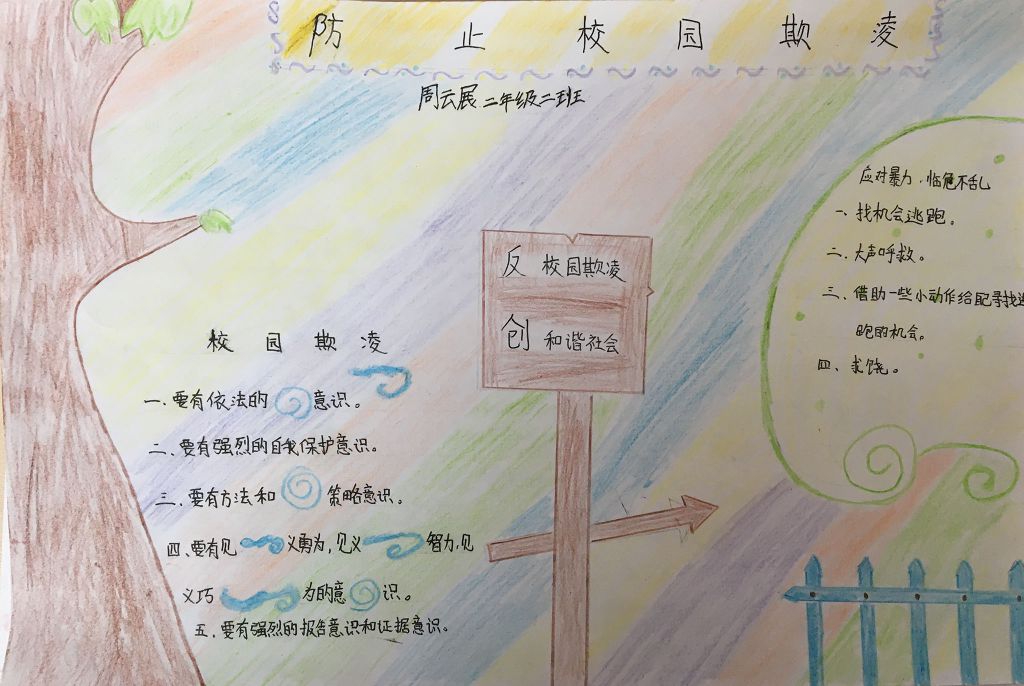 防止校园欺凌
周云展 二年级二班
校园欺凌
一、要有依法的意识。
二、要有强烈的自我保护意识。
三、要有方法和策略意识。
四、要有见义勇为,见义智力,见
义巧为的意识。
五、要有强烈的报告意识和证据意识。
反 校园欺凌
创 和谐社会
应对暴力,临危不乱
一、找机会逃跑。
二、大声呼救。
三、借助一些小动作给自己寻找逃
跑的机会。
四、求饶。